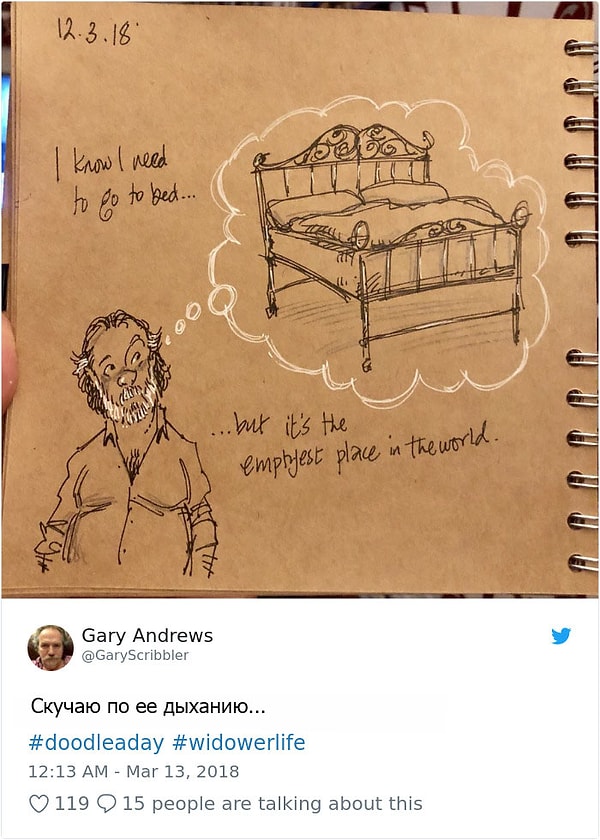 12.3.18
I know I need
to go to bed...
...but it's the
emptyest place in the world.
Gary Andrews
@GaryScribbler
Скучаю по ее дыханию...
#doodleaday #widowerlife
12:13 AM - Mar 13, 2018
119 15 people are talking about this